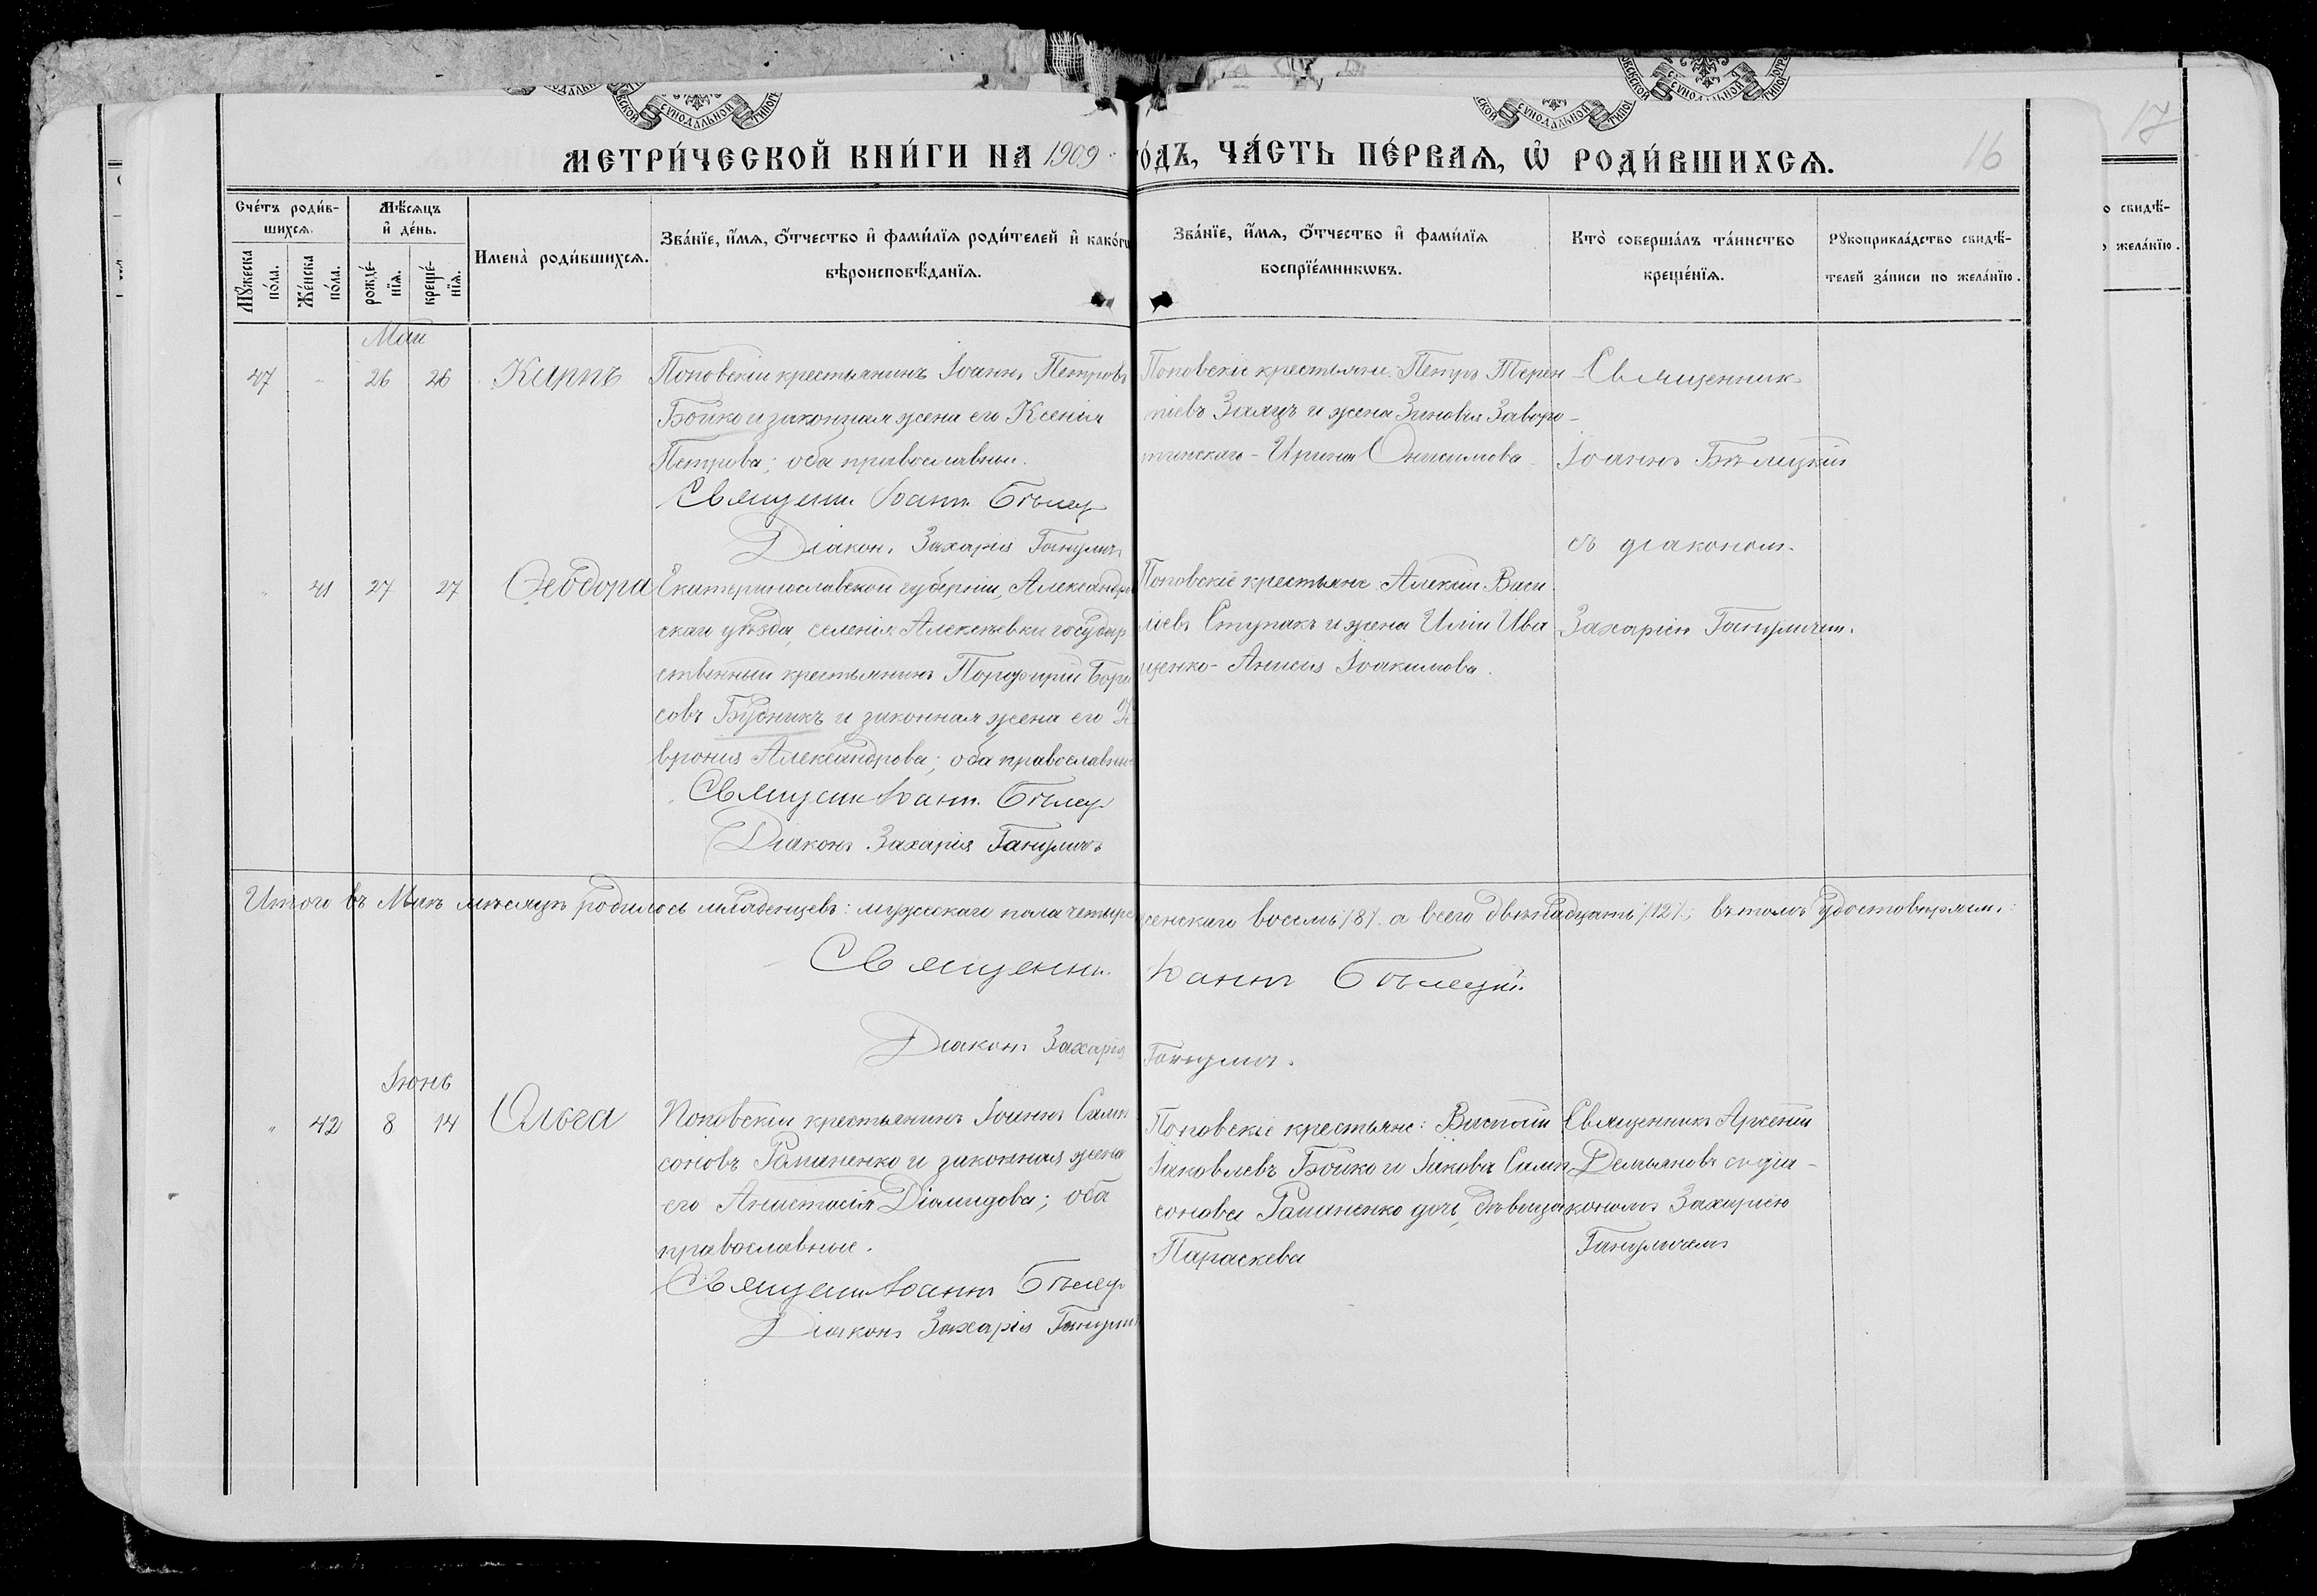 МЕТРИ́ЧЕСКОЙ КНИ́ГИ НА 1909 ГО́ДЪ, ЧА́СТЬ ПЕ́РВАЯ, Ѡ҆ РОДИ́ВШИХСЯ.
16
17
Сче́тъ роди́в-
шихся.
Мѣ́сяцъ
и҆ де́нь.
Мꙋ́жеска по́ла.
Же́нска по́ла.
рожде́-нїя.
креще́-нїя.
Имена̀ роди́вшихся.
Зва́нїе, и҆́мя, ѻ҆́тчество и҆ фами́лїя роди́телей и҆ како́гѡ
вѣроисповѣ́данїя.
Зва́нїе, и҆́мя, ѻ҆́тчество и҆ фами́лїя
воспрїе́мникѡвъ.
Кто̀ соверша́лъ та́инство
креще́нїя.
Рꙋкоприкла́дство свидѣ́-
телей за́писи по жела́нїю.
о свидѣ́-
жела́нїю.
Май
47 " 26 26 Карпъ
Поповскій крестьянинъ Іоаннъ Петровъ
Бойко и законная жена его Ксенія
Петрова; оба православные.
Священн. Іоанн. Бѣлец
Діаконъ Захарія Ганулич
Поповскіе крестьяне: Петръ Терен-
тіевъ Заяцъ и жена Зиновія Заворо-
тинскаго - Ирина Онисимова
Священник
Іоаннъ Бѣлицкій
съ діаконом.
Захаріею Гануличем.
" 41 27 27 Ѳеодора
Екатеринославской губерніи, Александров
скаго уѣзда, селенія Алексѣевки государ
ственный крестьянинъ Порфирій Бори
совъ Будникъ и законная жена его Хе
вронія Александрова; оба православные
Священн Іоанн. Бѣлец
Діаконъ Захарія Гануличъ
Поповскіе крестьяне Алексій Васи
ліевъ Ступакъ и жена Иліи Ива
щенко - Анисія Іоакимова.
Итого въ Маѣ мѣсяцѣ родилось младенцевъ: мужескаго пола четыре женскаго восемь /8/. а всего двѣнадцать /12/; въ томъ удостовѣряемъ:
Священни. Іоаннъ Бѣлецкій.
Діаконъ Захарія Ганулич.
Іюнь
" 42 8 14 Ольга
Поповскій крестьянинъ Іоаннъ Самп
соновъ Романенко и законная жена
его Анастасія Діамидова; оба
православные.
Священн Іоаннъ Бѣлец
Діаконъ Захарія Ганулич
Поповскіе крестьяне: Василій
Іаковлевъ Бойко и Іакова Самп
сонова Романенко дочь, дѣвица
Параскева
Священникъ Арсеній
Демьяновъ съ діа-
кономъ Захаріею
Гануличемъ